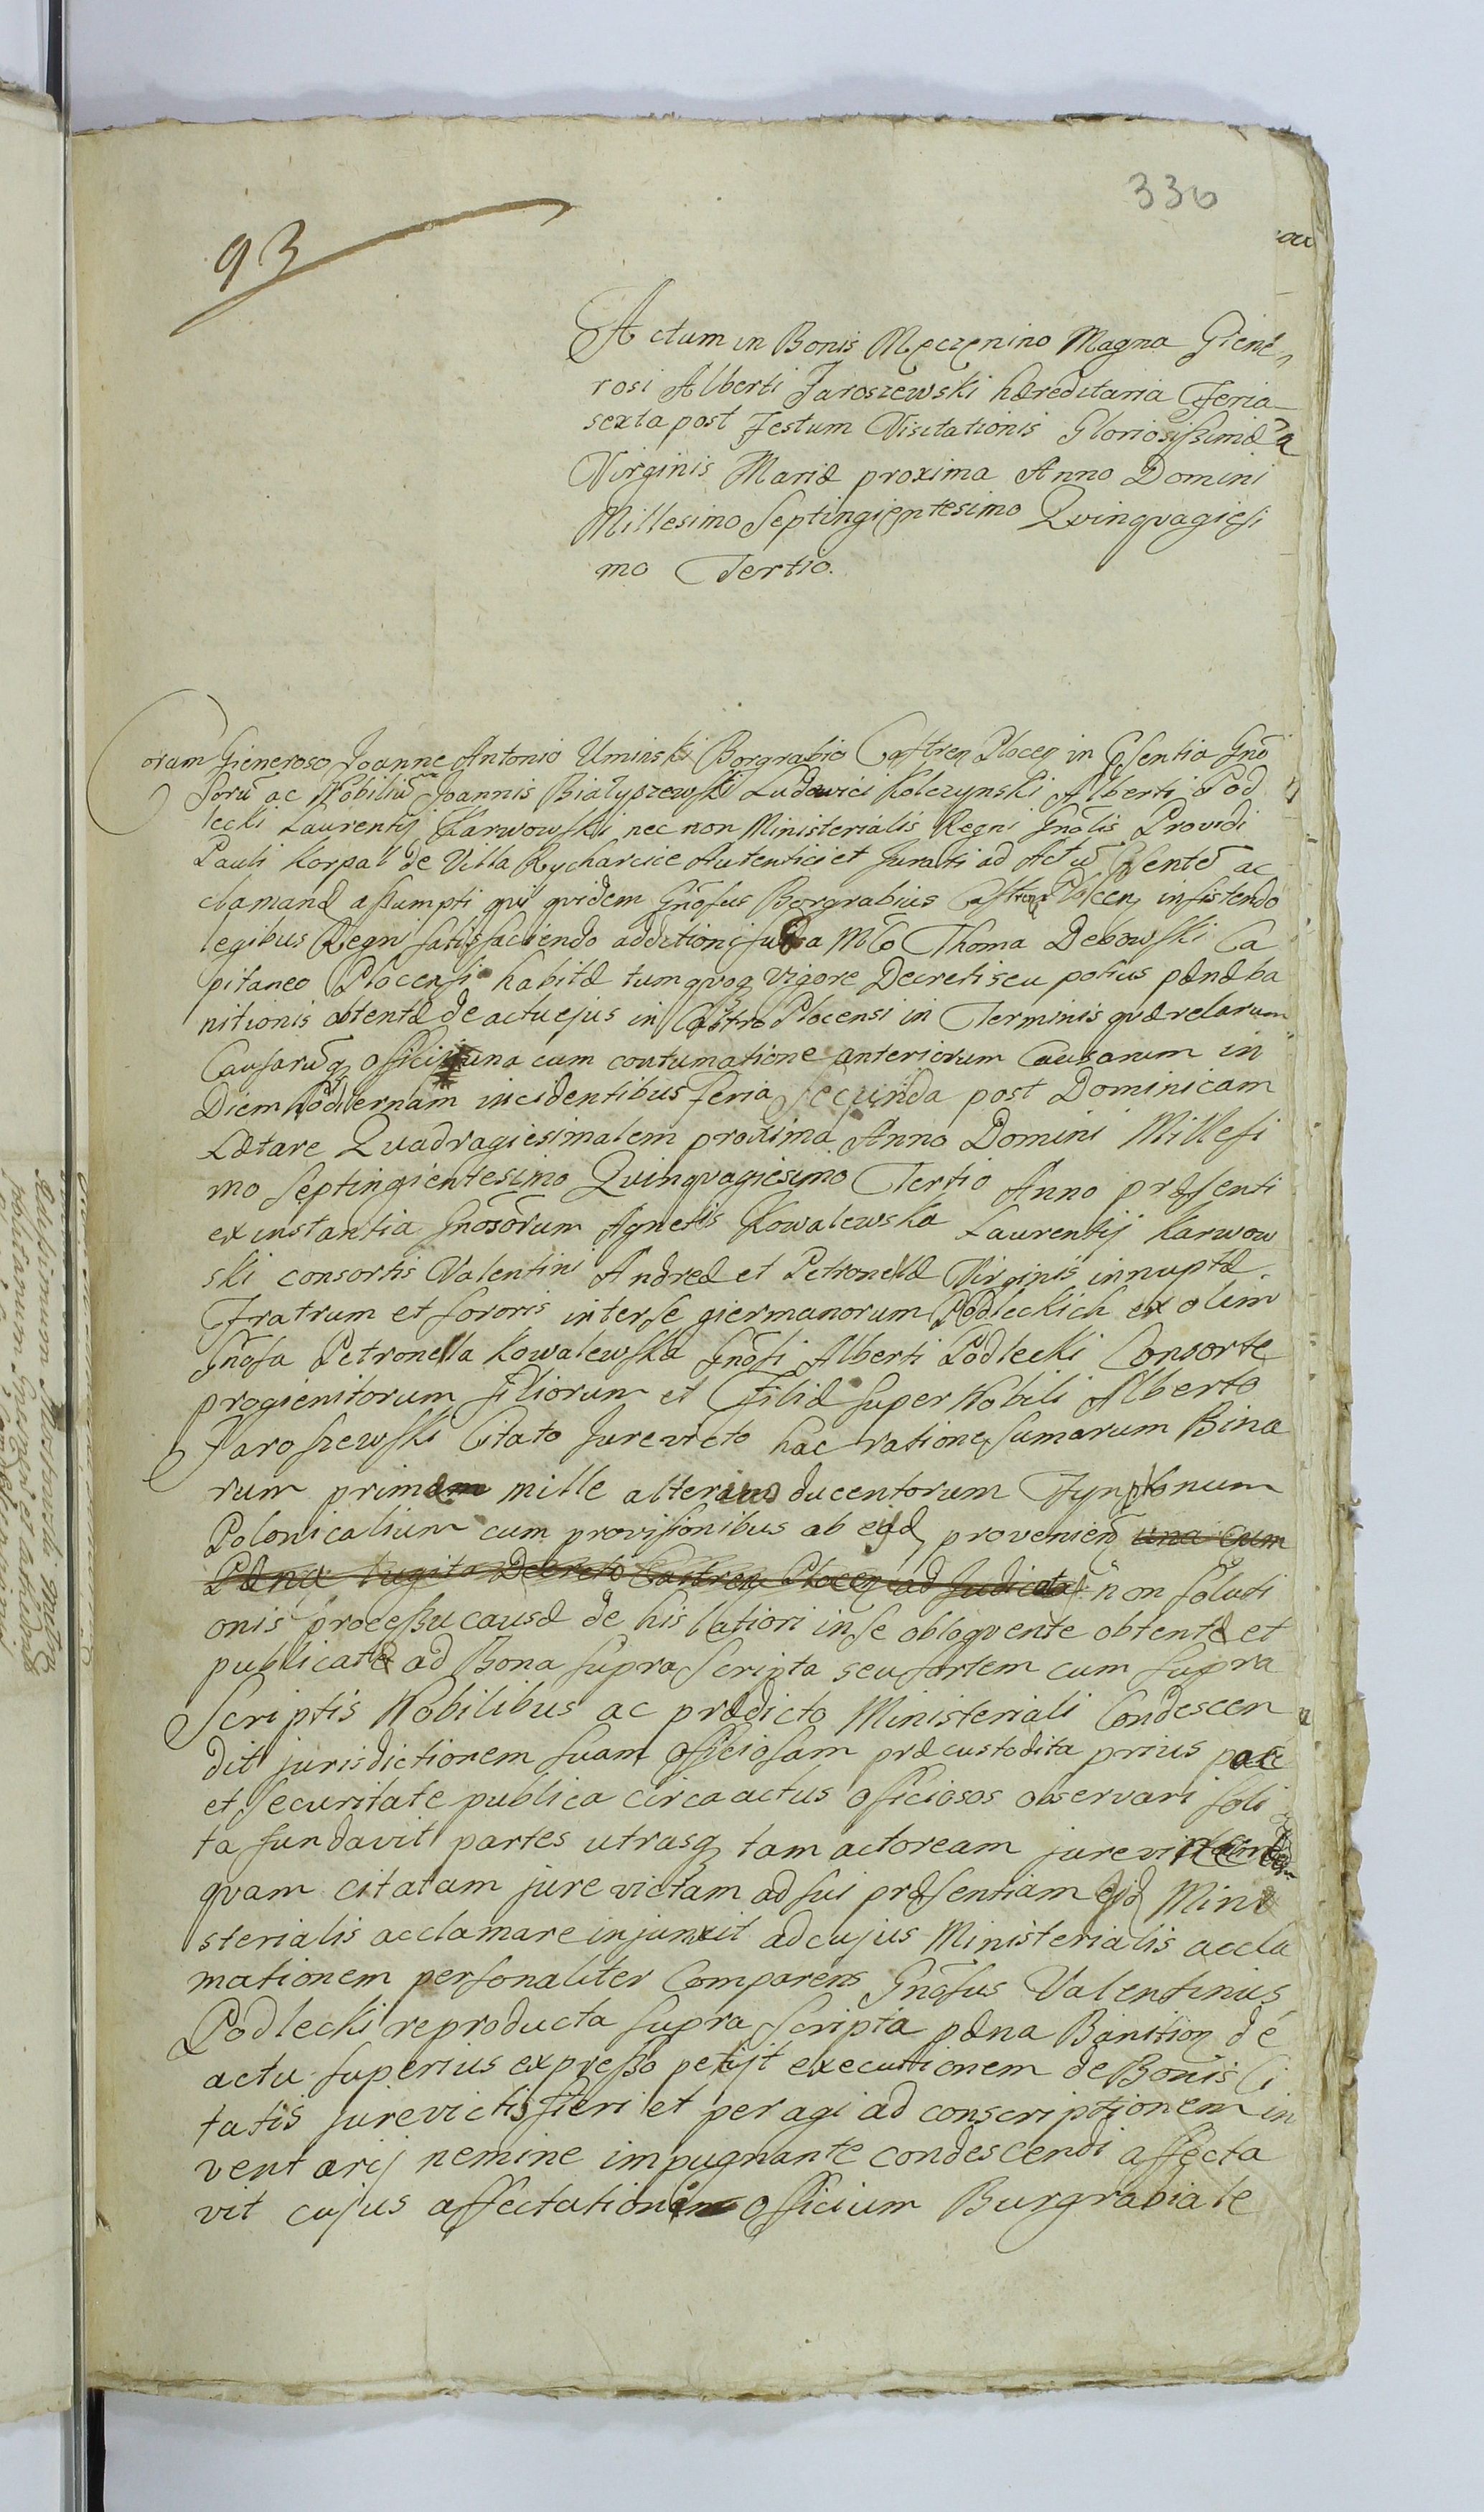 336
93
Actum in Bonis Męczęnino Magna Giene
rosi Alberti Jaroszewski hæreditaria Feria
sexta post Festum Visitationis Gloriosissimæ
Virginis Mariæ proxima Anno Domini
Millesimo Septingięntesimo Qvinqvagiesi
mo Tertio.
Coram Gieneroso Joanne Antonio Uminski Borgrabio Castren Plocen in Psentia Gnõ
sorũ ac Nobiliũ Joannis Białyszewski Ludowici Kolczynski Alberti Pod
lecki Laurentij Karwowski nec non Ministerialis Regni Gnãlis Providi
Pauli Korpal de Villa Rycharcice Autentici et Jurati ad Actũ Psentẽ ac
clamand assumpti qvi qvidem Gnõsus Borgrabius Castren Plocen insistendo
legibus Regni satisfaciendo additioni Thoma Debowski Ca
pitaneo Plocensi habitæ tum qvoq vigore Decreti seu potius pænæ ba
nitionis obtentæ de actu ejus in Castro Plocensi in Terminis qværelarum
Causarũq officij una cum contumatione anteriorum Causarum in
Diem hodiernam incidentibus feria Secunda post Dominicam
Lætare Qvadragiesimalem proxima Anno Domini Millesi
mo Septingientesimo Qvinqvagiesimo Tertio Anno præsenti
ex instantia Gnõsorum Agnetis Kowalewska Laurentij Karwow
ski consortis Valentini Andreæ et Petronellæ Virginis innuptæ
Fratrum et sororis inter se giermanorum Podleckich ex olim
Gnõsa Petronella Kowalewska Gnõsi Alberti Podlecki Consorte
progienitorum Filiorum et Filiæ super Nobili Alberto
Jaroszewski Citato Jurevicto hac ratione sumarum Bina
rum mille ducentorum
Polonicalium cum provisionibus ab eisd provenien una cum
Pæna Decreto Castren Plocen ad Judicata non soluti
onis processu causæ de his latiori in se obloqvente obtentæ et
publicatæ ad Bona supra Scripta seu sortem cum supra
Scriptis Nobilibus ac prædicto Ministeriali Condescen
dit jurisdictionem suam officiosam præcustodita prius pace
et securitate publica circa actus officiosos observari soli
ta fundavit partes utrasq tam actoream
qvam citatam jurevictam ad sui præsentiam Mini
sterialis acclamare injunxit ad cujus Ministerialis accla
mationem personaliter Comparens Gnõsus Valentinus
Podlecki reproducta supra Scripta pæna Banition de
actu superius expresso petijt executionem de Bonis Ci
tatis jurevictis fieri et peragi ad conscriptionem in
ventarij nemine impugnante condescendi affecta
vit cujus affectationem officium Burgrabiale